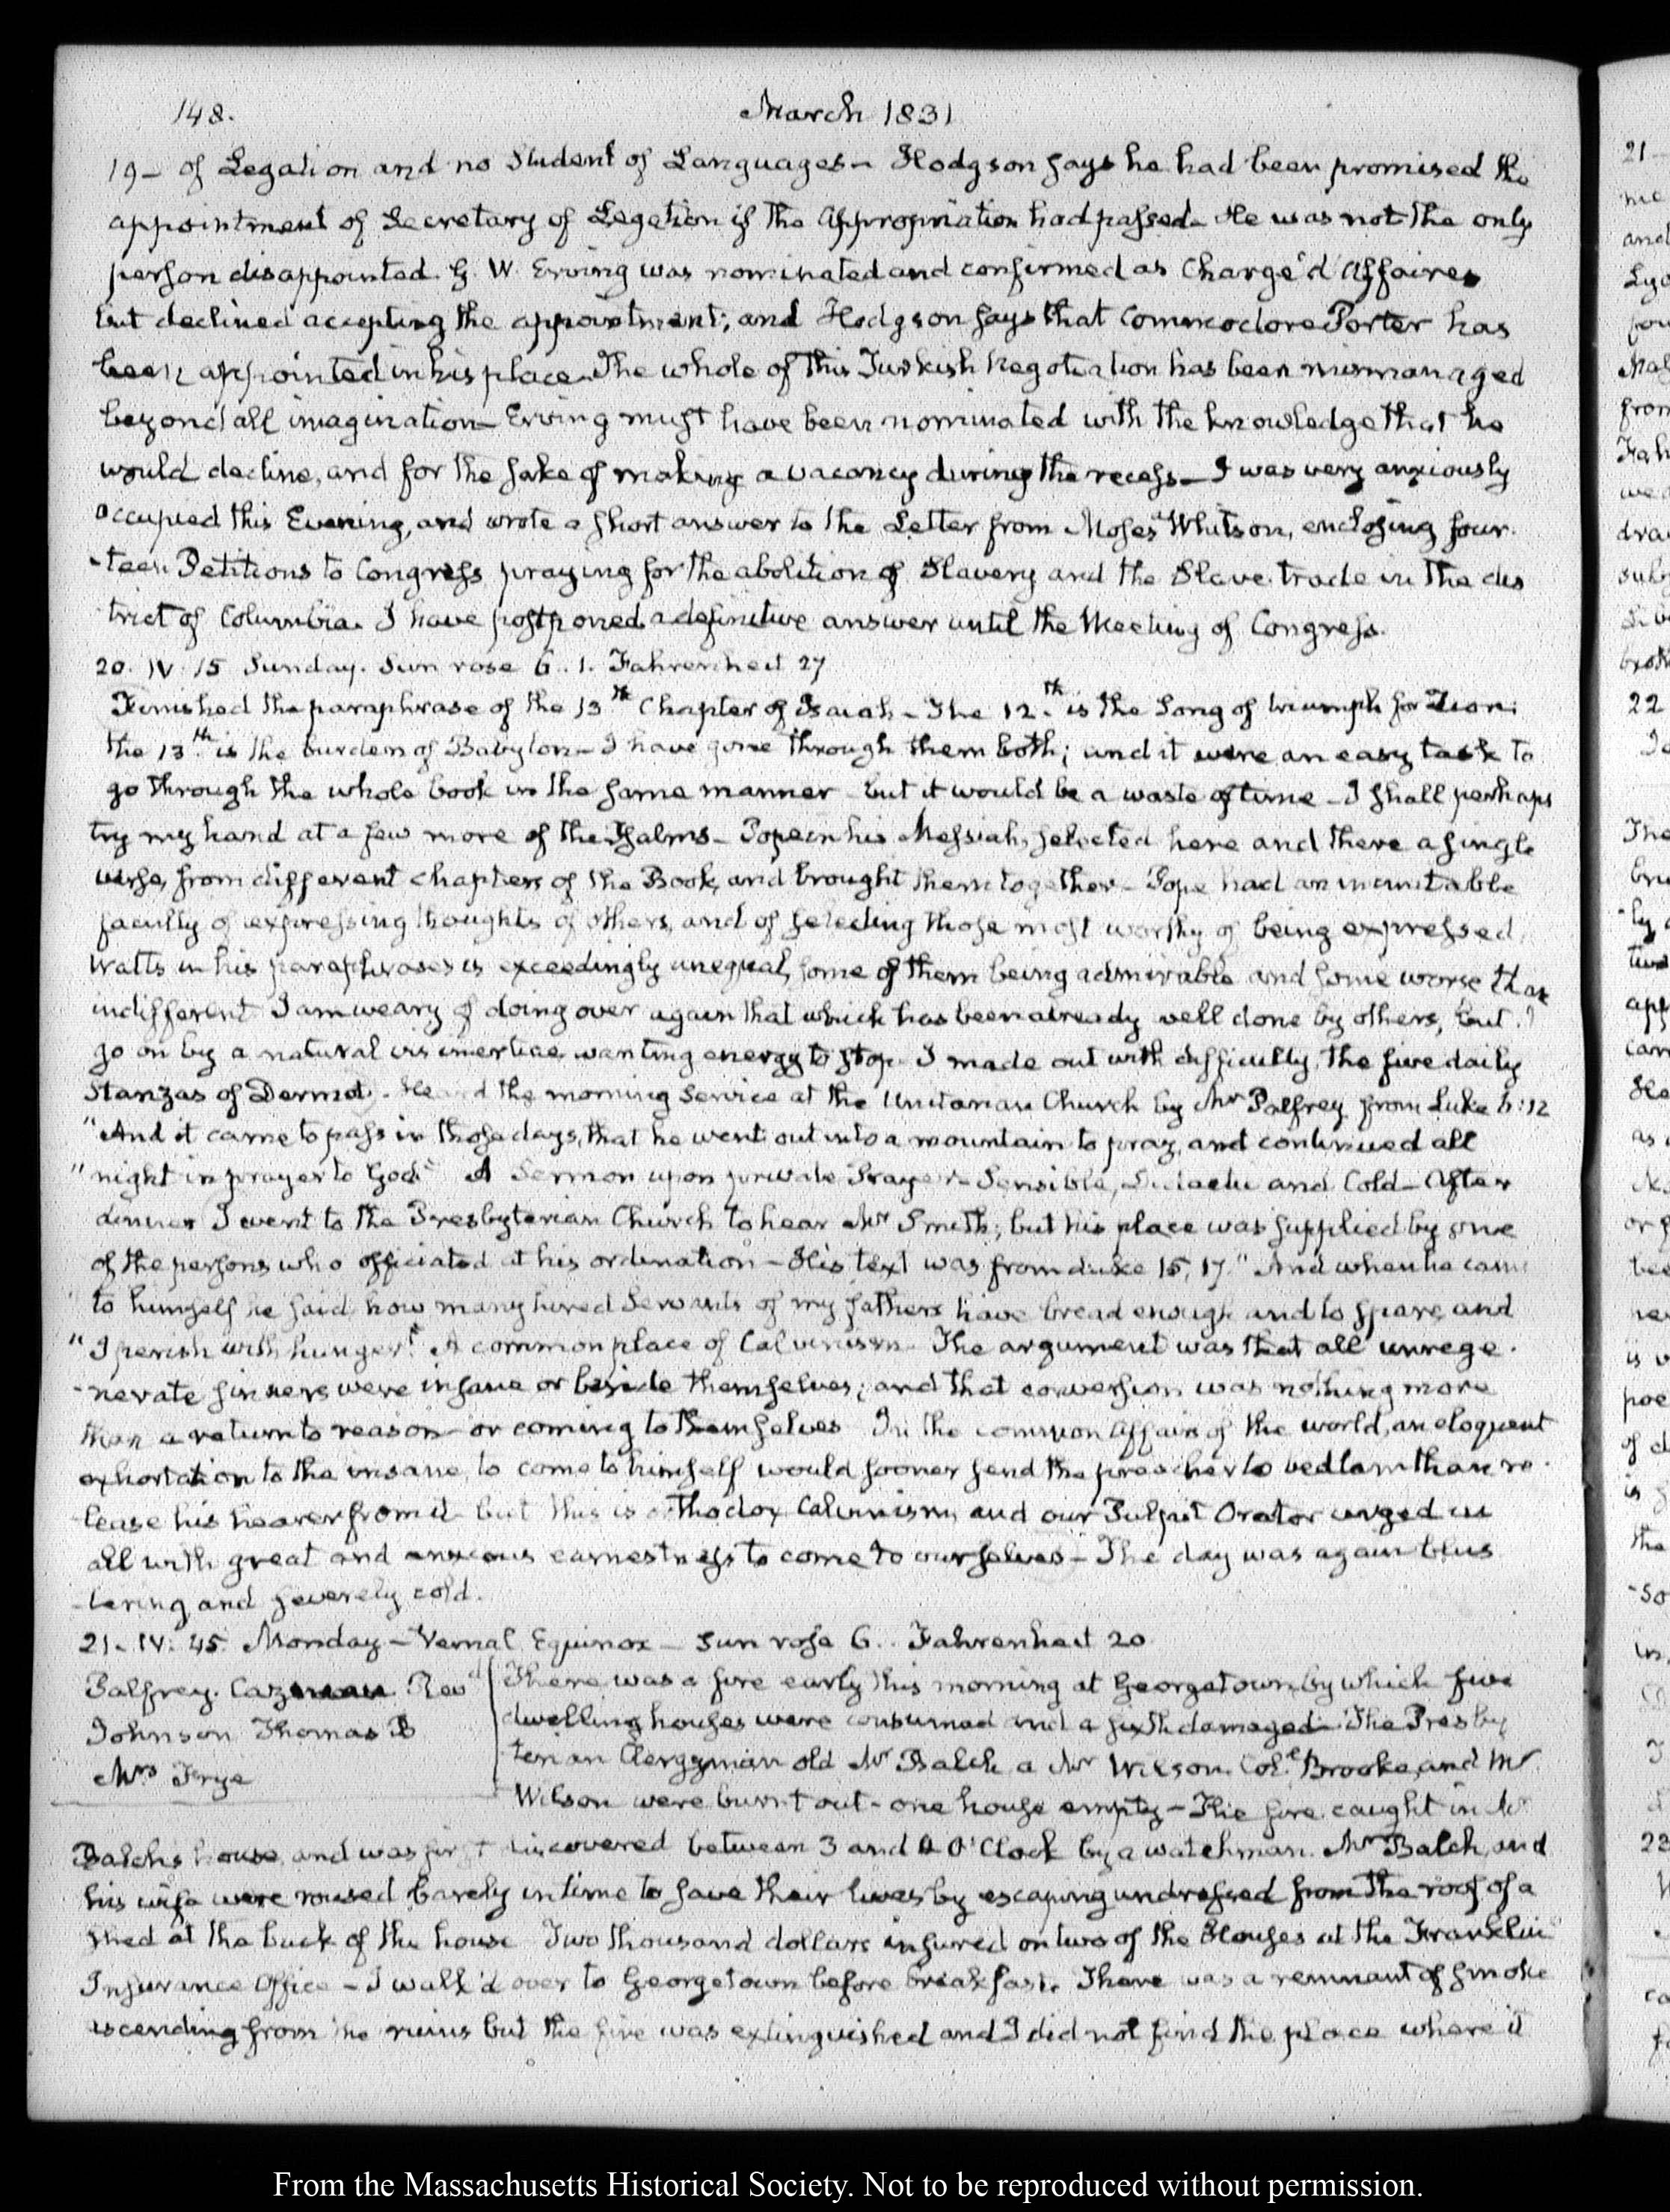 148. March 1831
19- of Legation and no Student of Languages- Hodgson says he had been promised the
appointment of Secretary of Legation if the Appropriation had passed- He was not the only
person disappointed. G. W. Erving was nominated and confirmed as Chargé d'Affaires
but declined accepting the appointment; and Hodgson says that Commodore Porter has
been appointed in his place. The whole of this Turkish Negotiation has been mismanaged
beyond all imagination- Erving must have been nominated with the knowledge that he
would decline, and for the sake of making a vacancy during the recess- I was very anxiously
occupied this Evening, and wrote a short answer to the Letter from Moses Whitson, enclosing four-
-teen Petitions to Congress praying for the abolition of Slavery and the Slave trade in the dis
trict of Columbia. I have postponed a definitive answer until the Meeting of Congress.
20. IV. 15 Sunday. Sun rose 6..1. Fahrenheit 27
Finished the paraphrase of the 13th Chapter of Isaiah- The 12.th is the Song of triumph for Zion:
the 13.th is the burden of Babylon- I have gone through them both; and it were an easy task to
go through the whole book in the same manner but it would be a waste of time- I shall perhaps
try my hand at a few more of the Psalms- Pope in his Messiah, selected here and there a single
verse, from different chapters of the Book, and brought them together- Pope had an inimitable
faculty of expressing thoughts of others, and of selecting those most worthy of being expressed.
Watts in his paraphrases is exceedingly unequal, some of them being admirable and some worse than
indifferent. I am weary of doing over again that which has been already well done by others, but I
go on by a natural vis inertiae, wanting energy to stop. I made out with difficulty, the five daily
Stanzas of Dermot. Heard the morning Service at the Unitarian Church by Mr Palfrey from Luke 6:12
"And it came to pass in those days, that he went out into a mountain to pray, and continued all
"night in prayer to God." A Sermon upon private Prayer- Sensible, Didactic and Cold- After
dinner I went to the Presbyterian Church to hear Mr Smith; but his place was supplied by one
of the persons who officiated at his ordination- His text was from Luke 15, 17. "And when he came
to himself he said, how many hired Servants of my fathers have bread enough and to spare, and
"I perish with hunger." A common place of Calvinism. The argument was that all unrege-
-nerate sinners were insane or beside themselves; and that conversion was nothing more
than a return to reason or coming to themselves In the common Affairs of the world, an eloquent
exhortation to the insane, to come to himself would sooner send the preacher to bedlam than re-
lease his hearer from it but this is orthodox Calvinism, and our Pulpit Orator urged us
all with great and anxious earnestness to come to ourselves- The day was again blus
-tering and severely cold.
21. IV: 45. Monday- Vernal Equinox- Sun rose 6.. Fahrenheit 20
Palfrey. Cazneau Revd
Johnson Thomas B
Mrs Frye
There was a fire early this morning at Georgetown, by which five
dwelling houses were consumed and a sixth damaged- The Presby
terian Clergyman old Mr Balch a Mr Wilson. Coll Brooke, and Mr
Wilson were burnt out- one house empty- The fire caught in Mr
Balch's house, and was first discovered between 3 and 4 O'Clock by a watchman. Mr Balch, and
his wife were roused barely in time to save their lives by escaping undressed from the roof of a
shed at the back of the house Two thousand dollars insured on two of the Houses at the Franklin
Insurance Office- I walk'd over to Georgetown before breakfast. There was a remnant of smoke
ascending from the ruins but the fire was extinguished and I did not find the place where it
From the Massachusetts Historical Society. Not to be reproduced without permission.